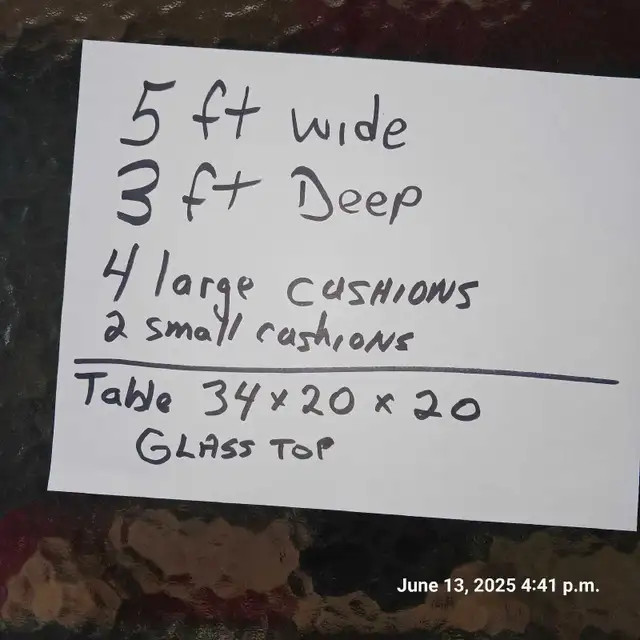 5 ft wide
3 ft Deep
4 large CUSHIONS
2 small cushIONS
Table 34 x 20 x 20
GLASS TOP
June 13, 2025 4:41 p.m.